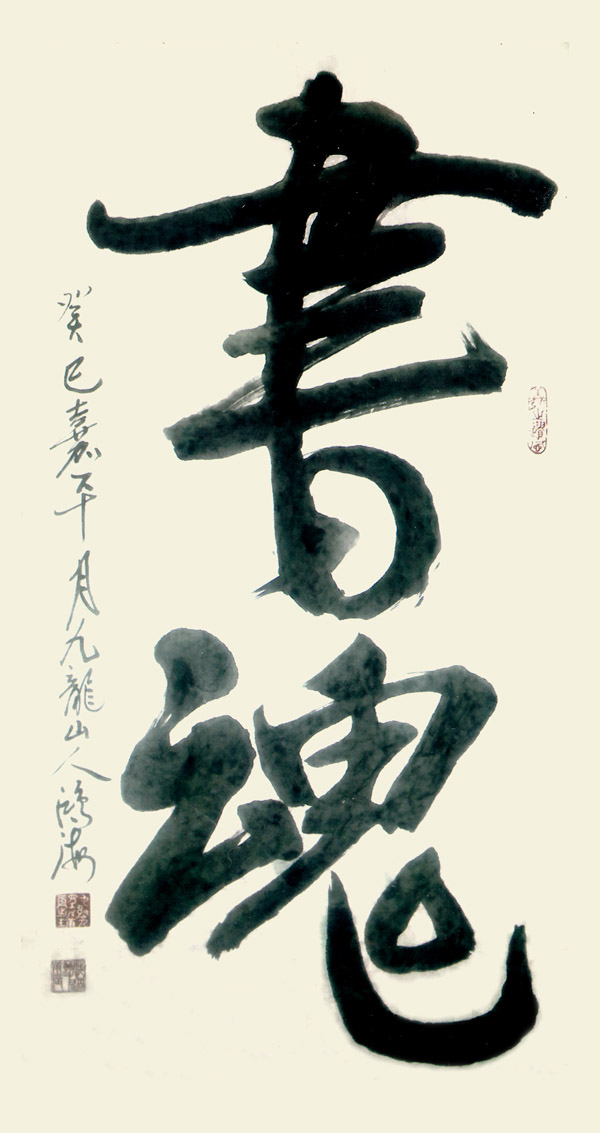 書魂
癸巳嘉平月九龍山人鴻海